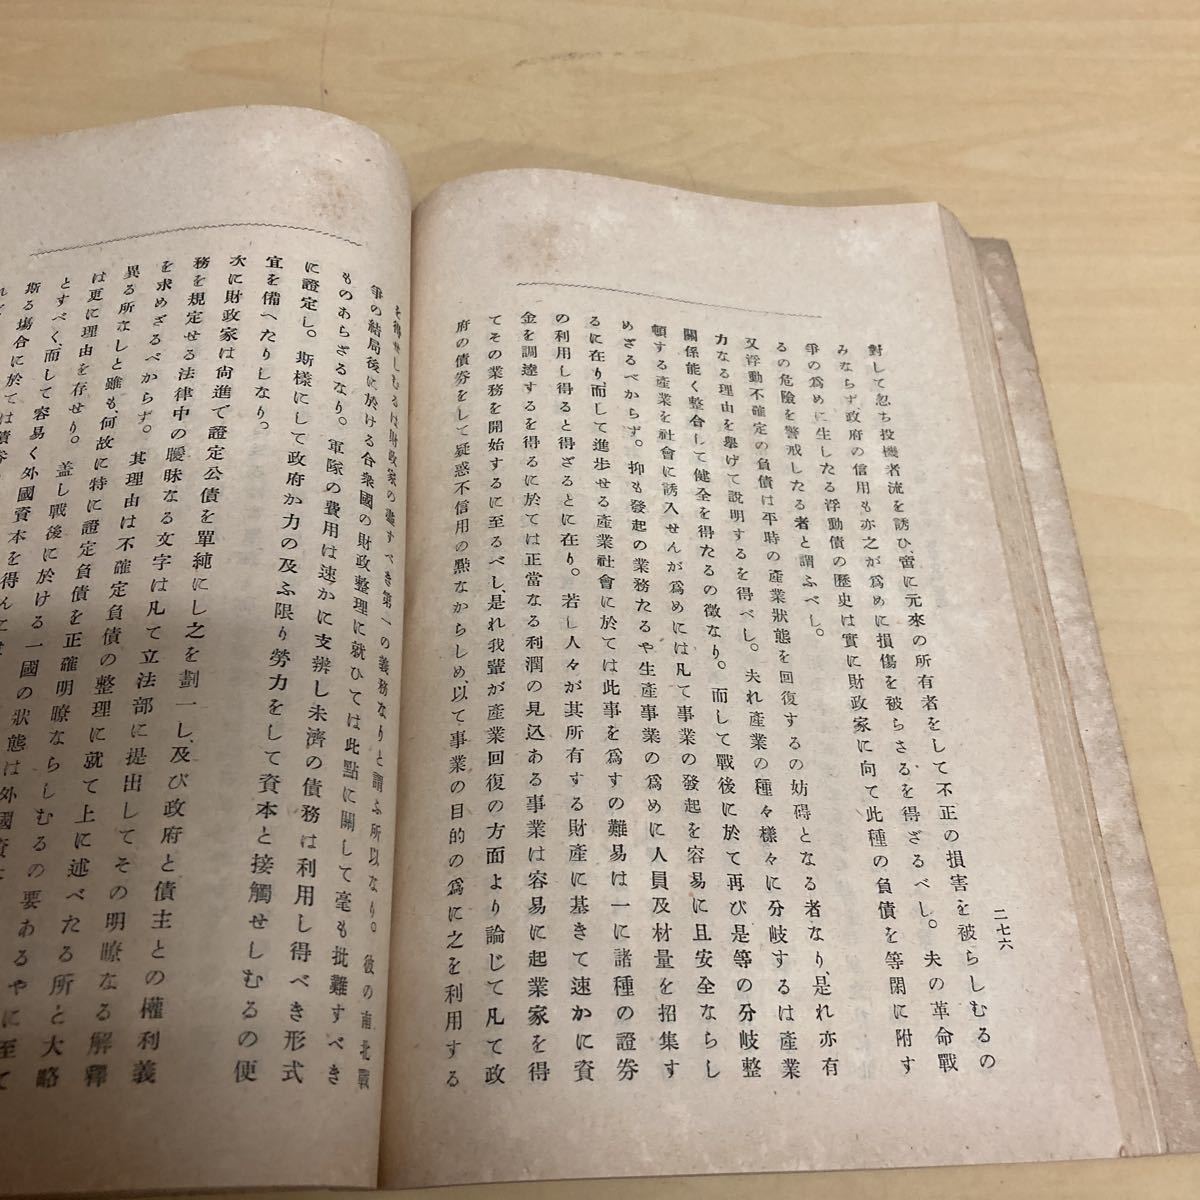 二七六
對して忽ち投機者流を誘ひ、啻に元來の所有者をして不正の損害を被らしむるの
みならず、政府の信用も亦之が爲めに損傷を被らさるを得ざるべし。夫の革命戰
爭の爲めに生したる浮動債の歷史は實に財政家に向て此種の負債を等閑に附す
るの危險を警戒したる者と謂ふべし。
又浮動不確定の負債は平時の產業狀態を回復するの妨碍となる者なり、是れ亦有
力なる理由を擧げて說明するを得べし。夫れ產業の種々樣々に分岐するは產業
關係能く整合して健全を得たるの徵なり。而して戰後に於て再び是等の分岐整
頓する產業を社會に誘入せんが爲めには凡て事業の發起を容易に且安全ならし
めざるべからず。抑も發起の業務たるや生產事業の爲めに人員及材量を招集す
るに在り而して進步せる產業社會に於ては此事を爲すの難易は一に諸種の證券
の利用し得ると得ざるとに在り。若し人々が其所有する財產に基きて速かに資
金を調達するを得るに於ては正當なる利潤の見込ある事業は容易に起業家を得
てその業務を開始するに至るべし、是れ我輩が產業回復の方面より論じて凡て政
府の債券をして疑惑不信用の點なからしめ、以て事業の目的の爲に之を利用する
を得せしむるは財政家の盡すべき第一の義務なりと謂ふ所以なり。彼の南北戰
爭の結局後に於ける合衆國の財政整理に就ひては此點に關して毫も批難すべき
ものあらざるなり。軍隊の費用は速かに支辨し未濟の債務は利用し得べき形式
に證定し。斯樣にして政府か力の及ふ限り勞力をして資本と接觸せしむるの便
宜を備へたりしなり。
次に財政家は尙進で證定公債を單純にし之を劃一し、及び政府と債主との權利義
務を規定せる法律中の曖昧なる文字は凡て立法部に提出してその明瞭なる解釋
を求めざるべからず。其理由は不確定負債の整理に就て上に述べたる所と大略
異る所なしと雖も、何故に特に證定負債を正確明瞭ならしむるの要あるやに至て
は更に理由を存せり。蓋し戰後に於ける一國の狀態は外國資
とすべく、而して容易く外國資本を得んに
斯る場合に於ては債券